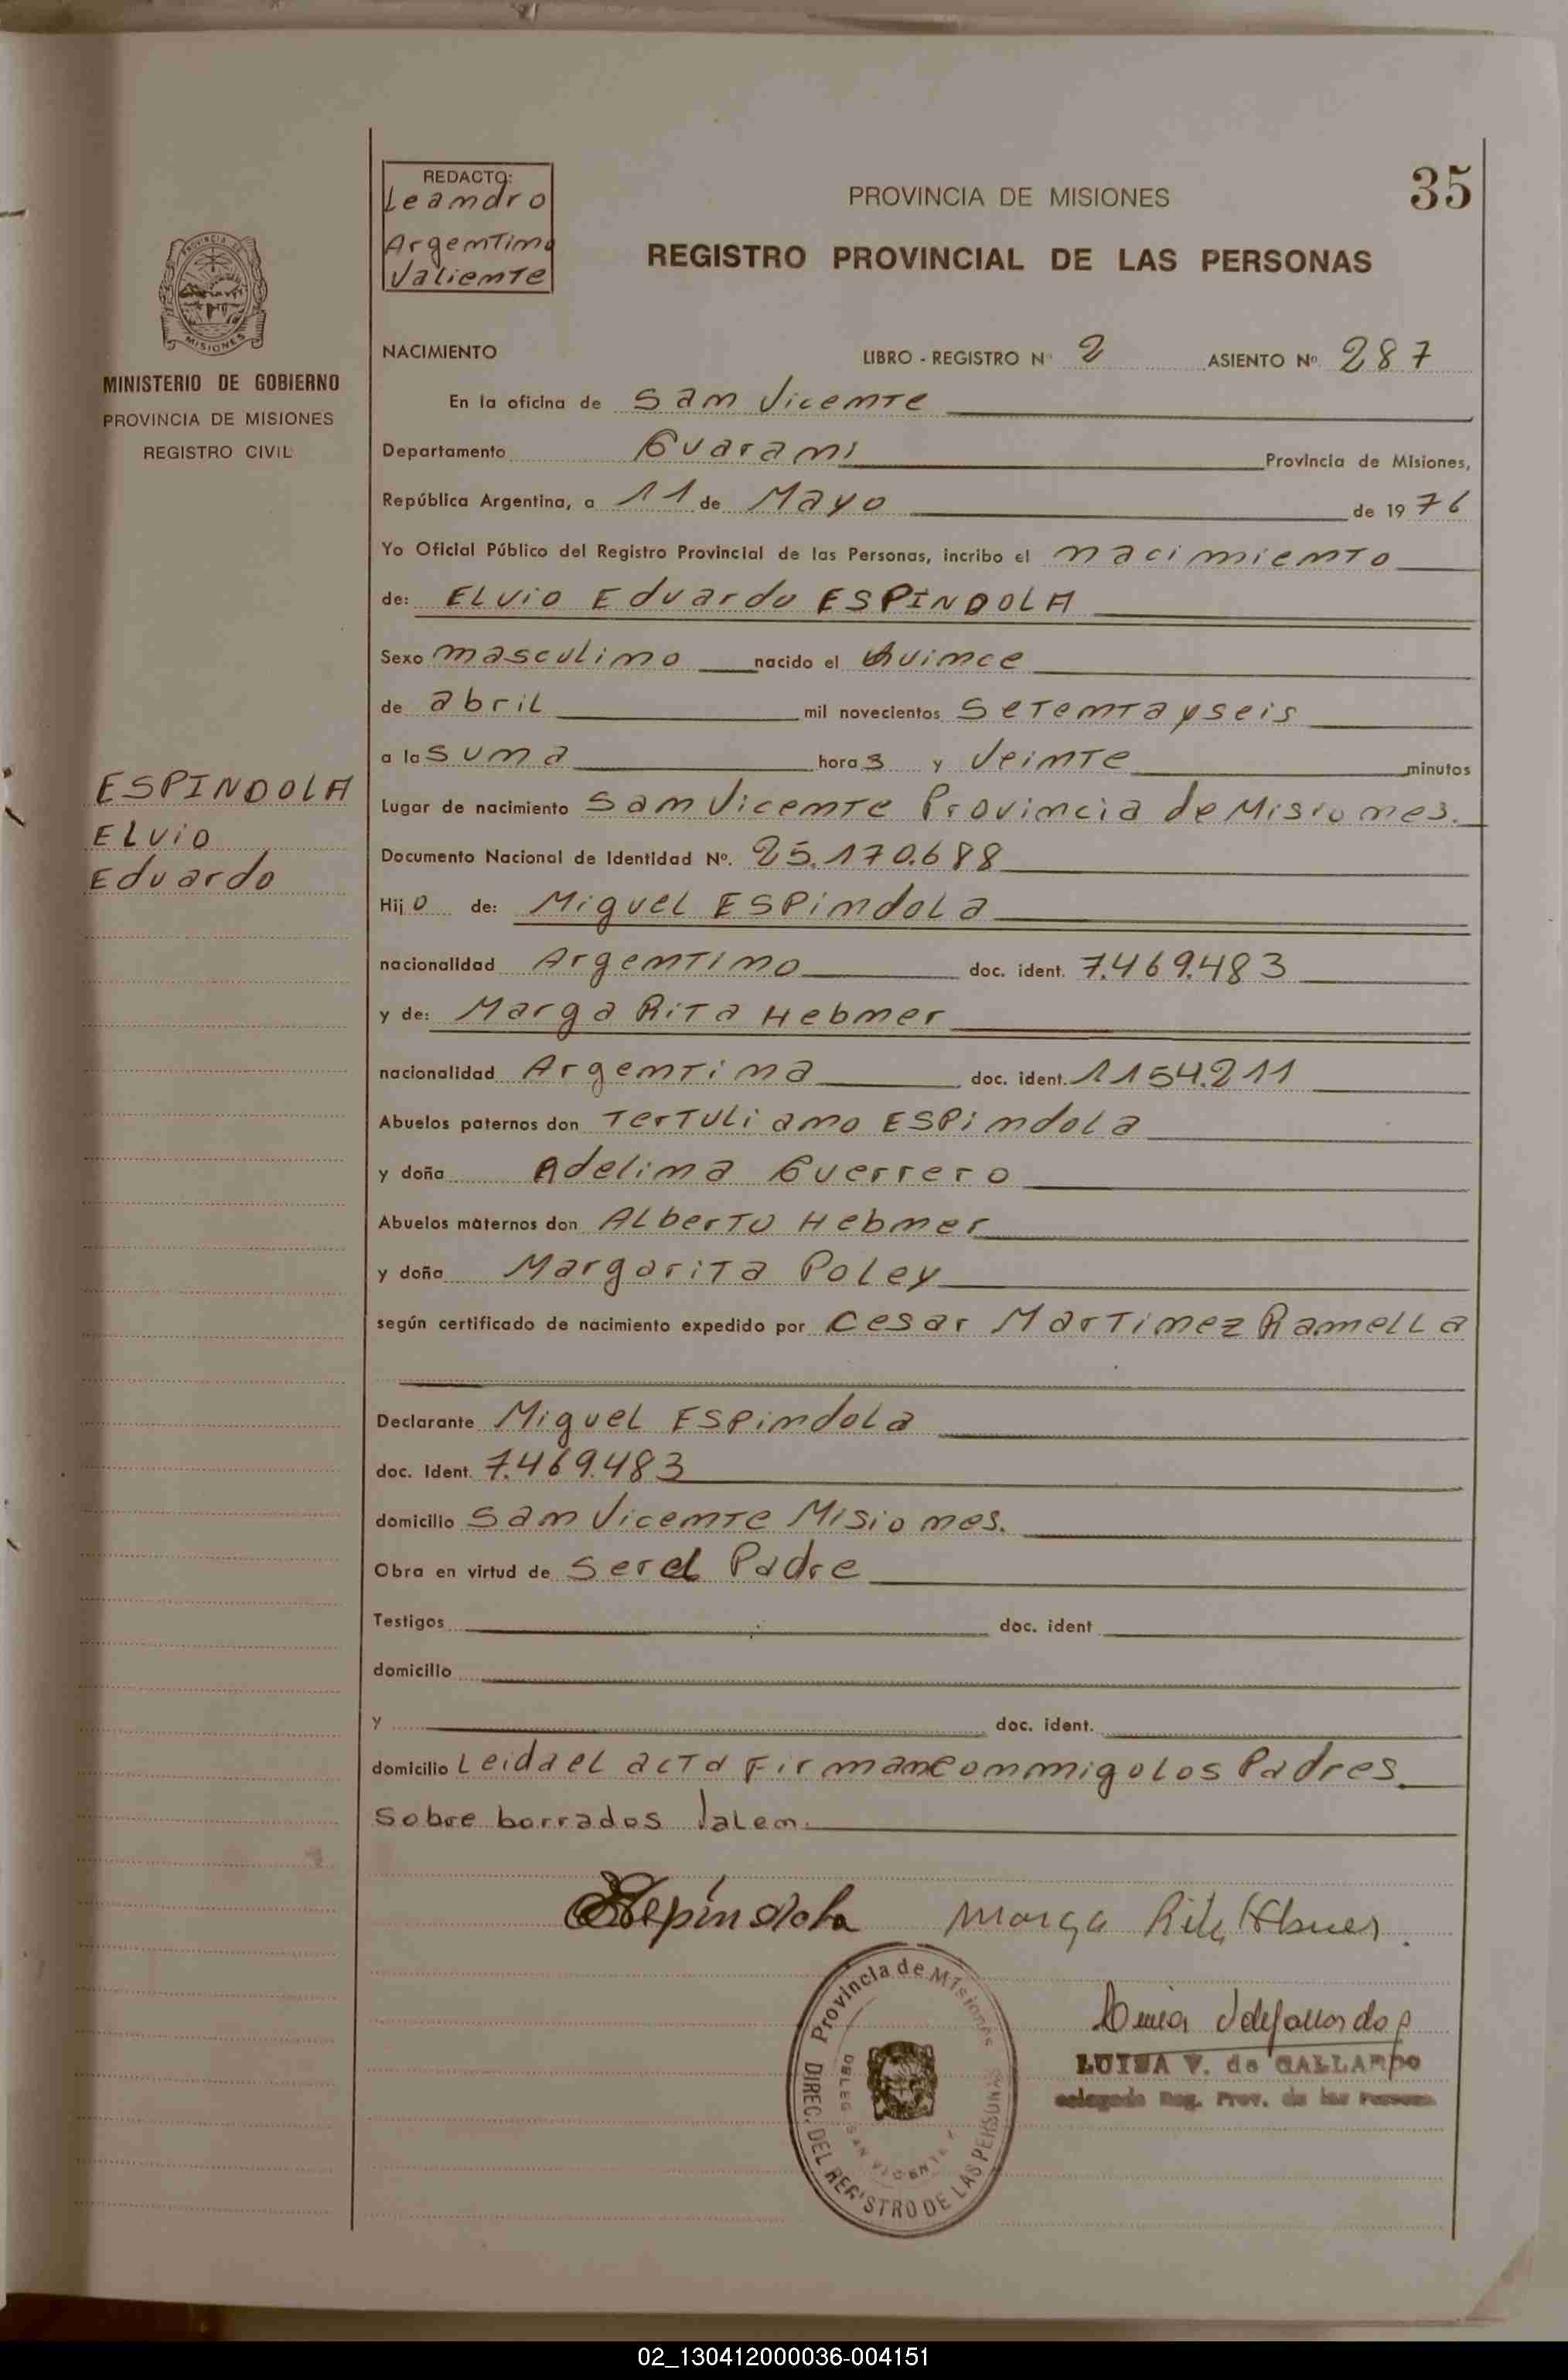 REDACTO:
Leandro
Argentino
Valiente
PROVINCIA DE MISIONES
35
REGISTRO PROVINCIAL DE LAS PERSONAS
PROVINCIA DE
MISIONES
MINISTERIO DE GOBIERNO
PROVINCIA DE MISIONES
REGISTRO CIVIL
ESPINDOLA
ELvio
Eduardo
NACIMIENTO LIBRO - REGISTRO Nº 2 ASIENTO Nº 287
En la oficina de San Vicente
Departamento Guarani Provincia de Misiones,
República Argentina, a 11 de Mayo de 1976
Yo Oficial Público del Registro Provincial de las Personas, incribo el nacimiento
de: ELvio Eduardo ESPINDOLA
Sexo masculino nacido el Quince
de abril mil novecientos Setentayseis
a las una horas y Veinte minutos
Lugar de nacimiento San Vicente Provincia de Misiones.
Documento Nacional de Identidad Nº. 25.170.688
Hijo de: Miguel ESPindola
nacionalidad Argentino doc. ident. 7.469.483
y de: Marga Rita Hebner
nacionalidad Argentina doc. ident. 1154.211
Abuelos paternos don Tertuliano ESPindola
y doña Adelina Guerrero
Abuelos maternos don Alberto Hebner
y doña Margarita Poley
según certificado de nacimiento expedido por Cesar Martinez Ramella
Declarante Miguel ESPindola
doc. Ident. 7.469.483
domicilio San Vicente Misiones.
Obra en virtud de Ser el Padre
Testigos doc. ident
domicilio
y doc. ident.
domicilio Leida el acta Firman conmigo los Padres.
Sobre borrados Valen.
Espíndola Marga Rita Hebner.
Provincia de Misiones
DIREC. DEL REGISTRO DE LAS PERSONAS
DELEG. SAN VICENTE
LUISA V. de GALLARDO
Delegada Reg. Prov. de las Personas
02_130412000036-004151